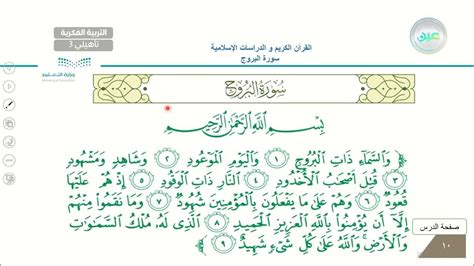 التربية الفكرية
تأهيلي 3
القرآن الكريم و الدراسات الإسلامية
سورة البروج
عين
وزارة التعليم
Ministry of Education
سُورَةُ البُرُوجِ
بِسْمِ اللَّهِ الرَّحْمَٰنِ الرَّحِيمِ
وَالسَّمَاءِ ذَاتِ الْبُرُوجِ ١ وَالْيَوْمِ الْمَوْعُودِ ٢ وَشَاهِدٍ وَمَشْهُودٍ
٣ قُتِلَ أَصْحَابُ الْأُخْدُودِ ٤ النَّارِ ذَاتِ الْوَقُودِ ٥ إِذْ هُمْ عَلَيْهَا
قُعُودٌ ٦ وَهُمْ عَلَىٰ مَا يَفْعَلُونَ بِالْمُؤْمِنِينَ شُهُودٌ ٧ وَمَا نَقَمُوا مِنْهُمْ
إِلَّا أَن يُؤْمِنُوا بِاللَّهِ الْعَزِيزِ الْحَمِيدِ ٨ الَّذِي لَهُ مُلْكُ السَّمَاوَاتِ
وَالْأَرْضِ وَاللَّهُ عَلَىٰ كُلِّ شَيْءٍ شَهِيدٌ ٩
صفحة الدرس
١٠